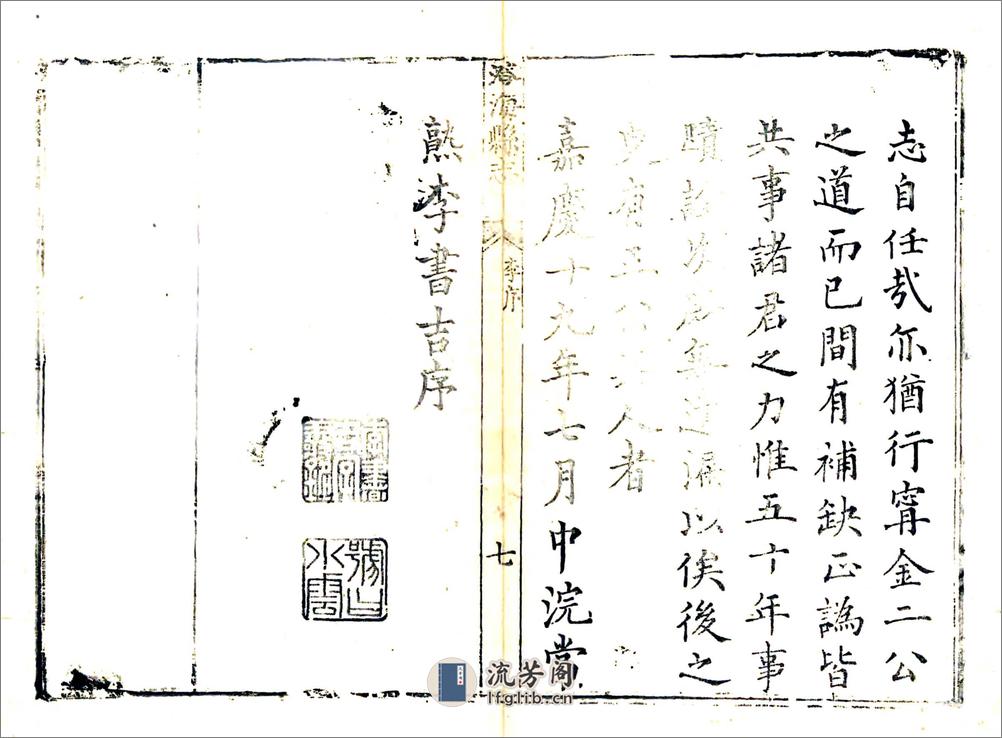 志自任哉亦猶行甯金二公
之道而已間有補缺正譌皆
共事諸君之力惟五十年事
蹟 次 無遺漏以俟後之
更有 公 人者
嘉慶十九年七月中浣常
澄海縣志
李序
七
熟李書吉序
號曰
小雲
流芳阁
lfglib.cn